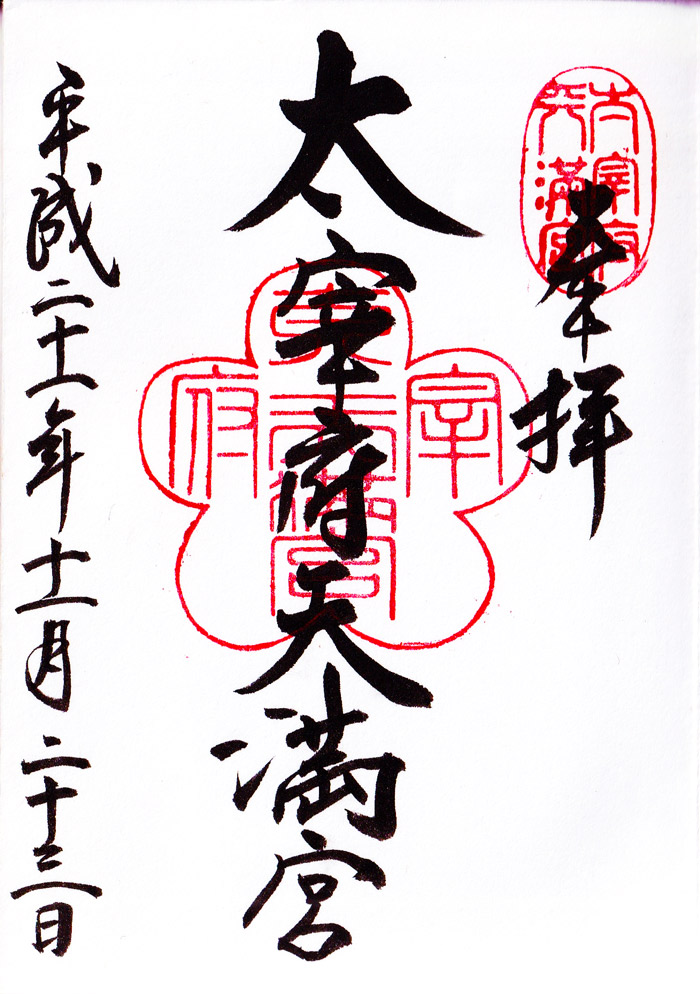 太宰府
天満宮
奉拝
太宰府天満宮
宰
府
天満宮
平成二十一年十一月二十三日